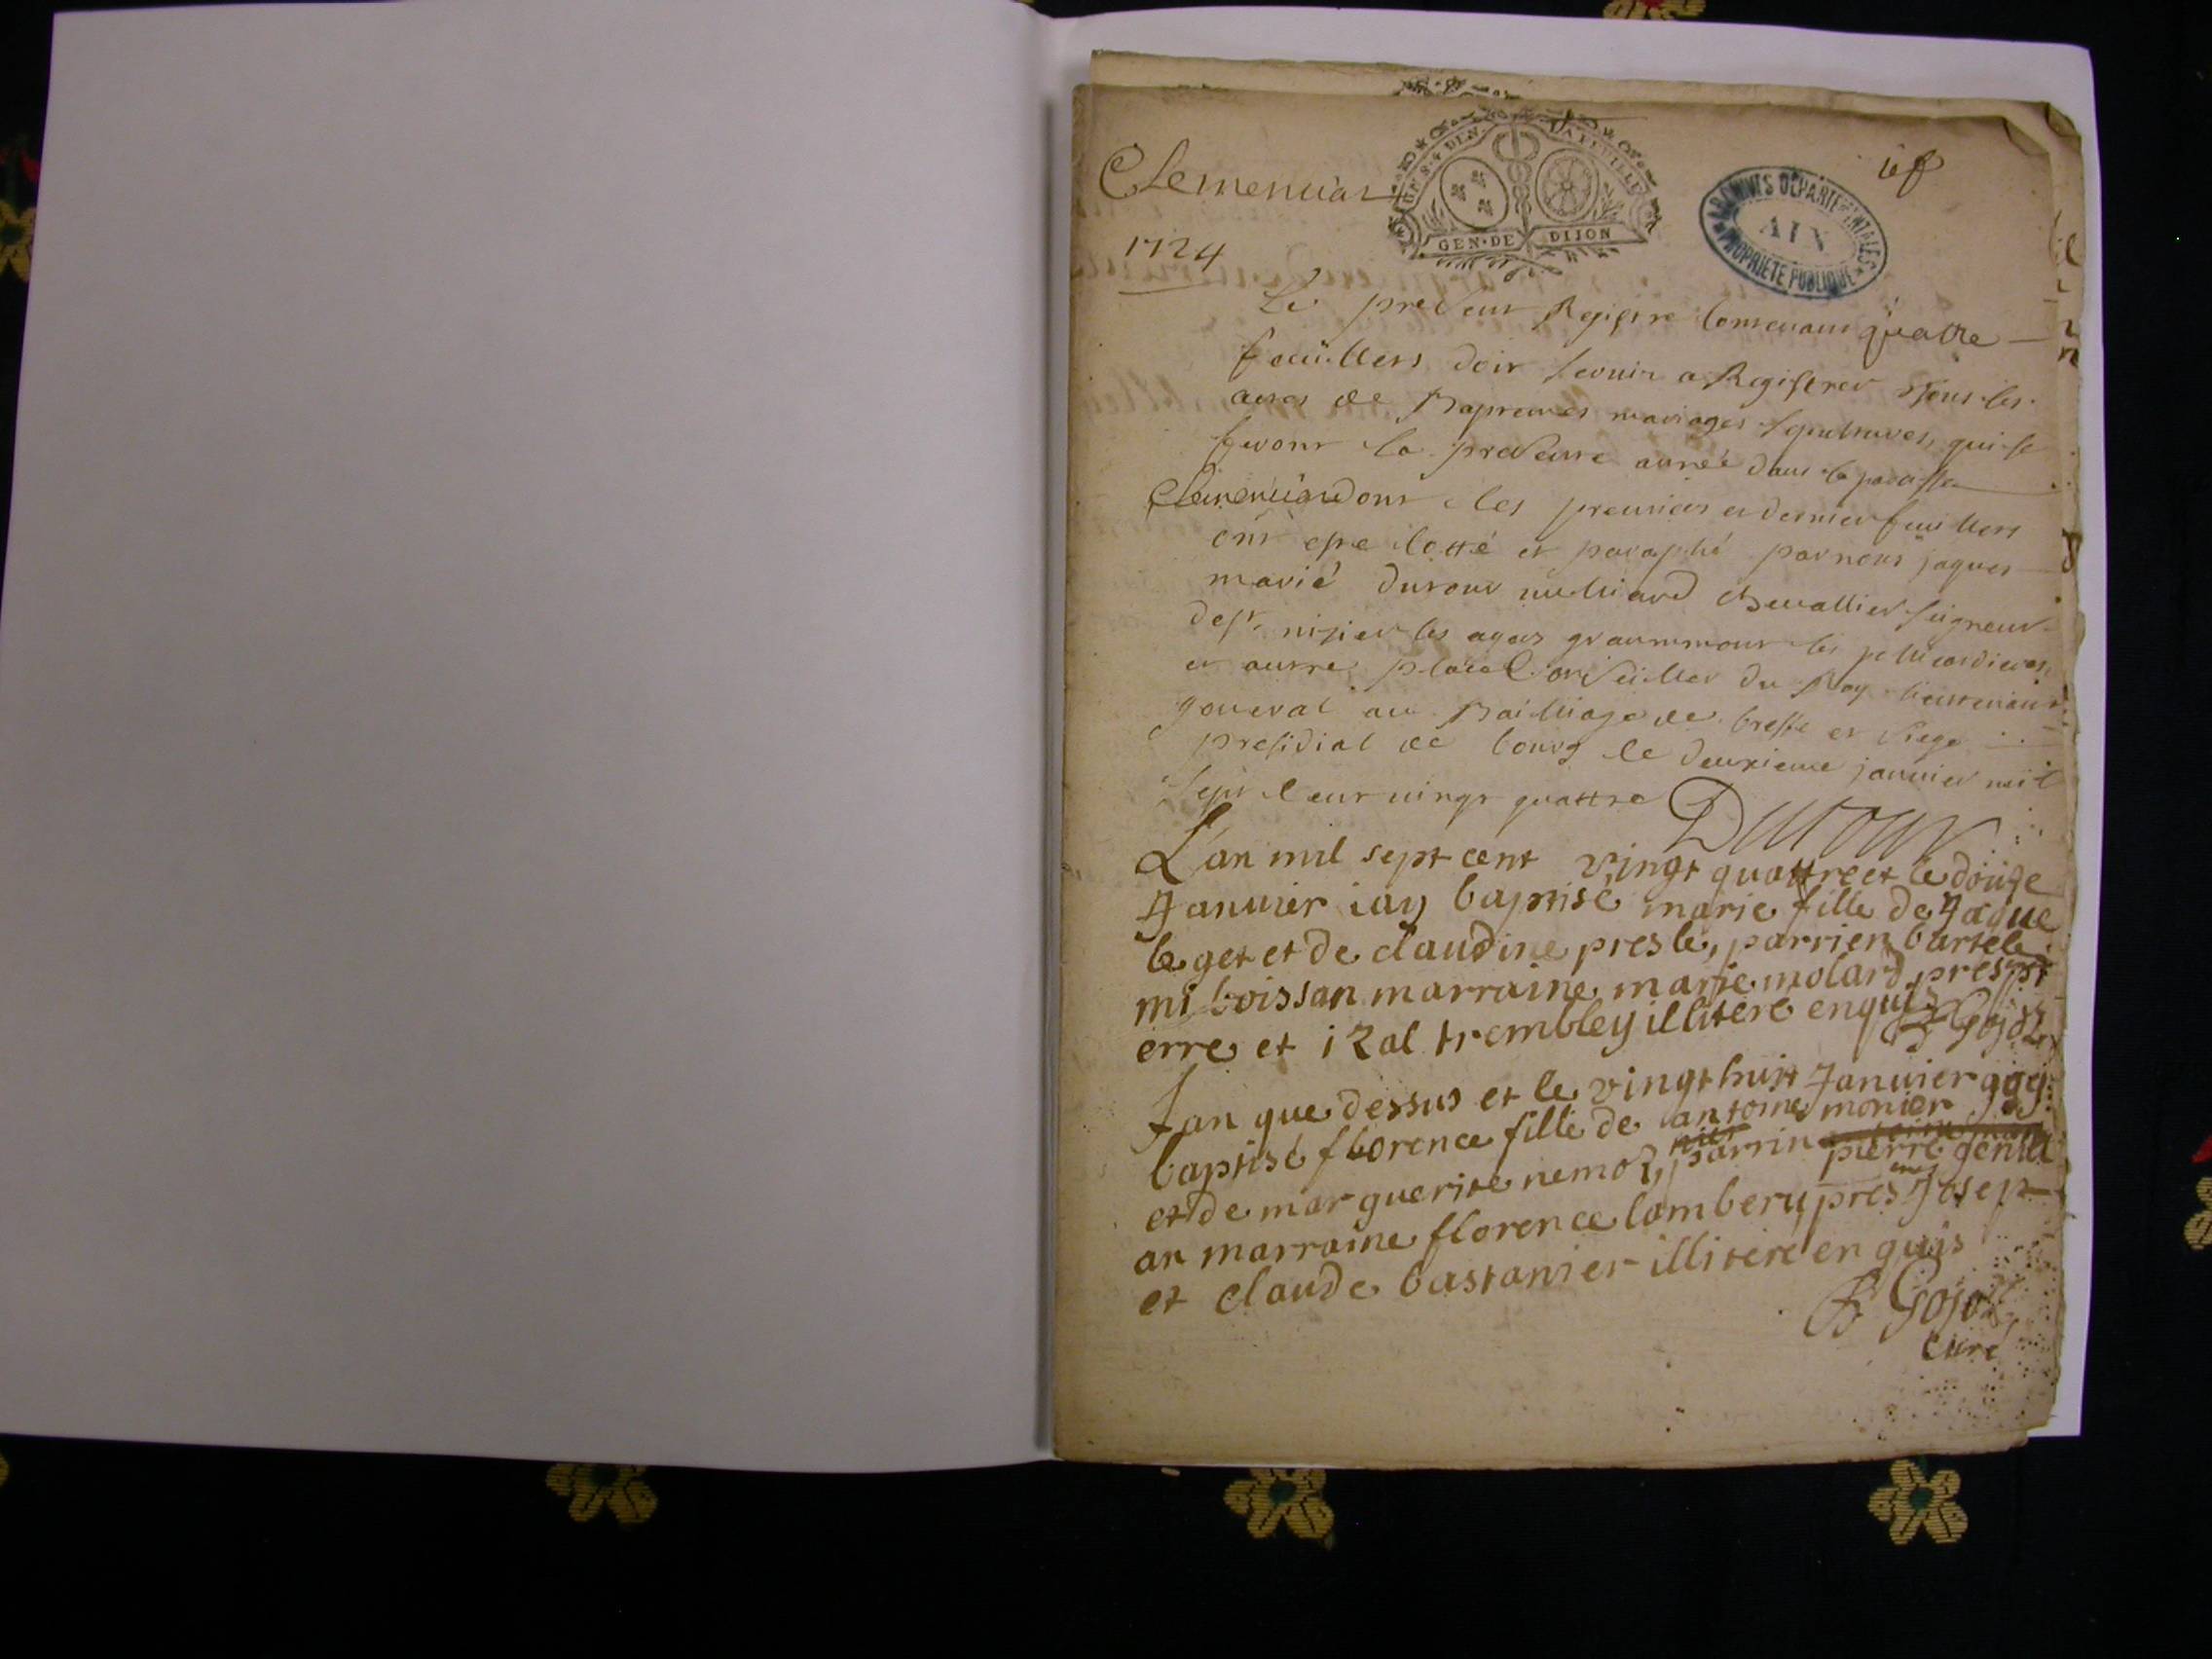 Clemencia
1724
GEN·DE DIJON
ARCHIVES DÉPARTEMENTALES
AIN
PROPRIÉTÉ PUBLIQUE
Le present Registre Contenant quattre
feuillets doit servir a Registrer tous les
actes de Baptemes mariages sepultures, qui se
feront la presente année dans la paroisse
Clemencia dont les premier et dernier feuillets
ont este Cotté et paraphé par nous jaques
marié Dutour vulliard chevallier seigneur
de st nizier les agas grammont les pelicardieres
et autre place Conseiller du Roy lieutenant
general au Bailliage de bresse et siege
presidial de bourg le deuxieme janvier mil
sept Cent vingt quattre Dutour
L'an mil sept cent vingt quattre et le douze
Januier iay baptisé marie fille de Jaque
leget et de claudine presle, parrien bartele
mi boissan marraine marie molard, pres
erre et izal trembley illitere enquis B Gojoz
Lan que dessus et le vingt huit Januier
baptisé florence fille de antoine monier
et de marguerite nemoz, parrin pierre
an marraine florence lambery, pres Josep
et claude bastanier illitere en quis
B Gojoz
Curé